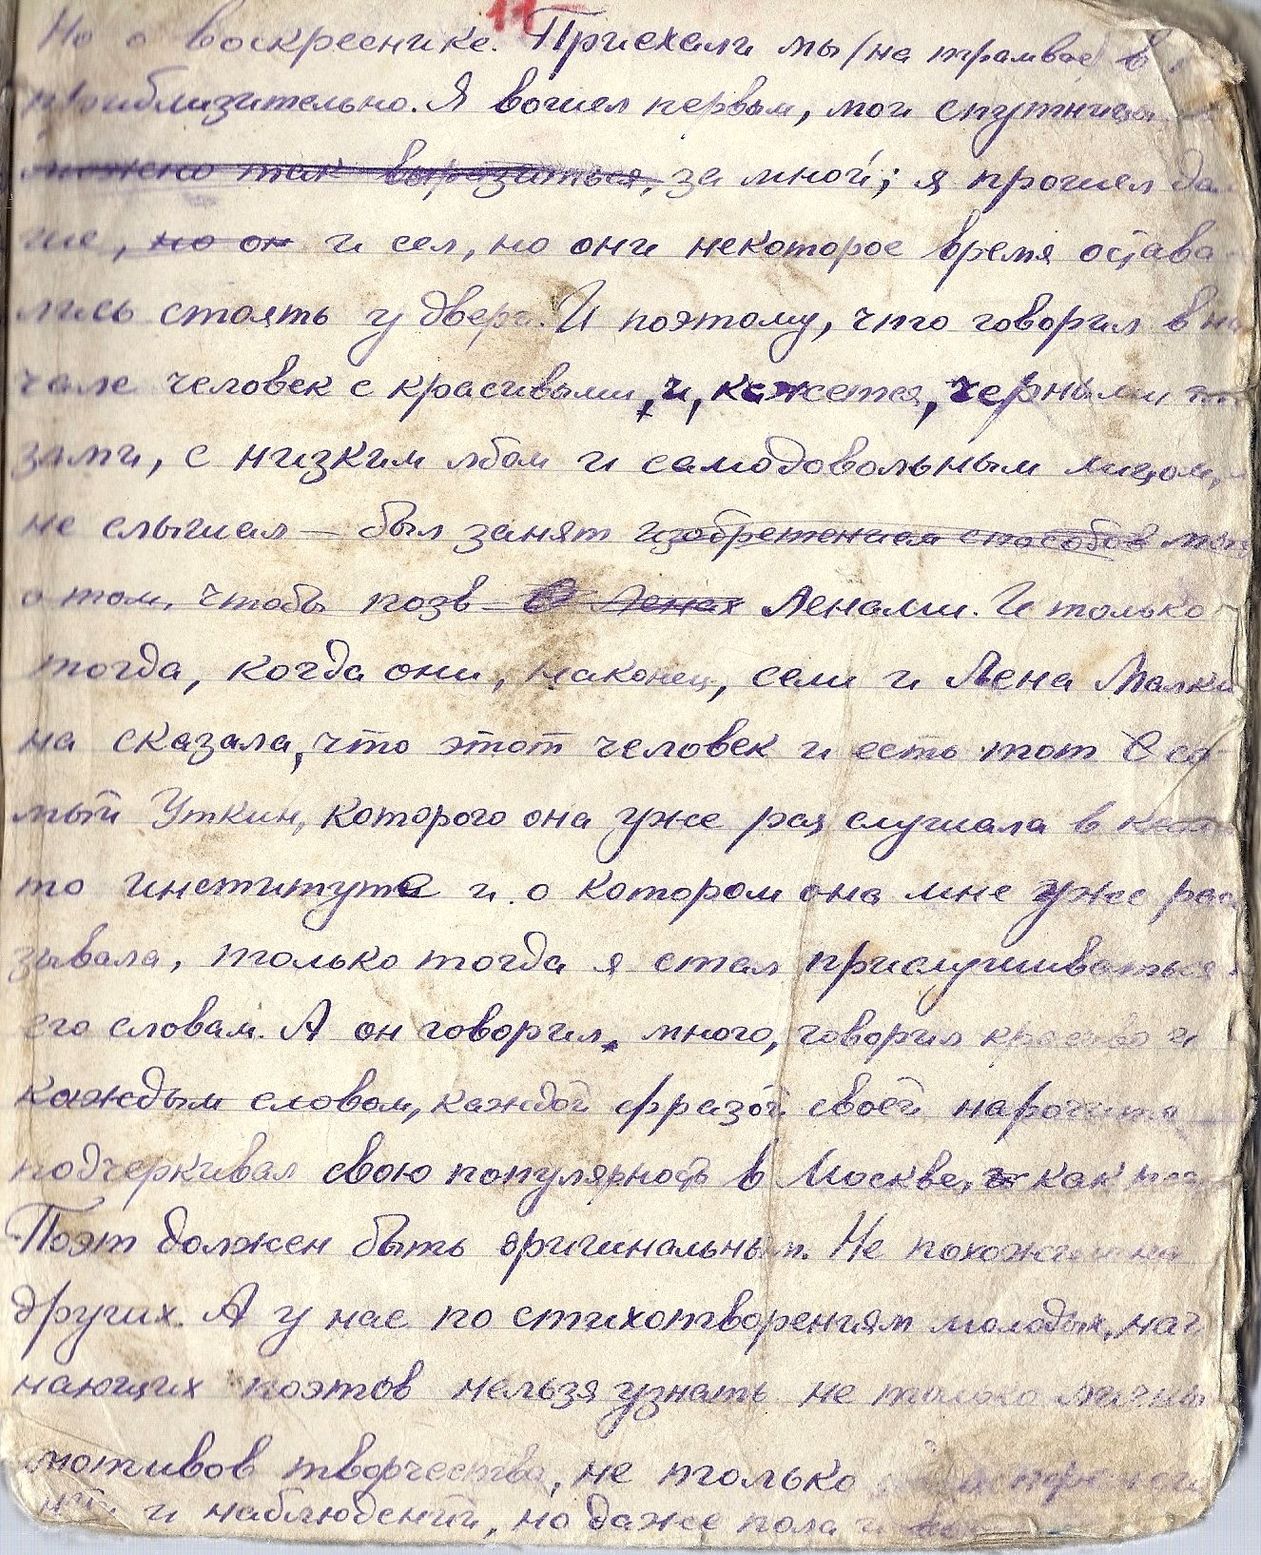 11
Но о воскреснике. Приехали мы (на трамвае) в
приблизительно. Я вошел первым, мои спутницы
можно так выразиться, за мной; я прошел даль
ше, но он и сел, но они некоторое время остава-
лись стоять у двери. И поэтому, что говорил вна
чале человек с красивыми, и, кажется, черными
зами, с низким лбом и самодовольным лицом, я
не слышал — был занят изобретением способов
о том, чтобы позв О Ленах Ленами. И только
тогда, когда они, наконец, сели и Лена Малки
на сказала, что этот человек и есть тот са-
мый Уткин, которого она уже раз слушала в
то институте и о котором она мне уже
зывала, только тогда я стал прислушиваться к
его словам. А он говорил, много, говорил красиво и
каждым словом, каждой фразой своей нарочито
подчеркивал свою популярность в Москве, как
Поэт должен быть оригинальным. Не похожим на
других. А у нас по стихотворениям молодых, начи
нающих поэтов нельзя узнать не только
мотивов творчества, не только
ний и наблюдений, но даже пола и